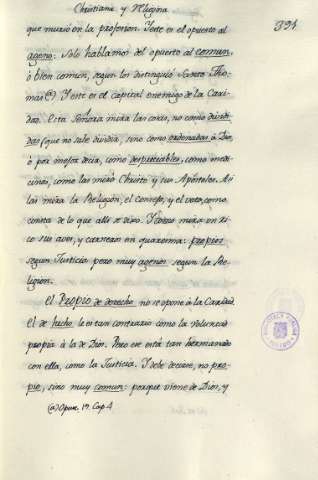 Christiana, y Religiosa
394.
que murió en la profesion. Y este es el opuesto al
ageno: Solo hablamos del opuesto al comun,
ò bien comun, segun los distinguió Santo Tho-
mas (a) Y este es el capital enemigo de la Cari-
dad. Esta Señora mira las cosas, no como dividi-
das (que no sabe dividir, sino como ordenadas à Dios,
ò por mejor decir, como despreciables, como
como las miró Christo y sus Apostoles. Asi
las mira la Religion, el consejo, y el voto, como
consta de lo que alli se dixo. Y mira en
sus aves, y carnes en quaresma: propios
segun Justicia pero muy agenos segun la Re-
ligion.
El Propio de derecho no se opone à la Caridad.
El de hecho le es tan contrario como la voluntad
propia à la de Dios. Pero ese está tan hermanado
con ella, como la Justicia. Y debe decirse, no pro-
pio, sino muy comun: porque viene de Dios, y
(a) Opusc. 19. Cap. 4